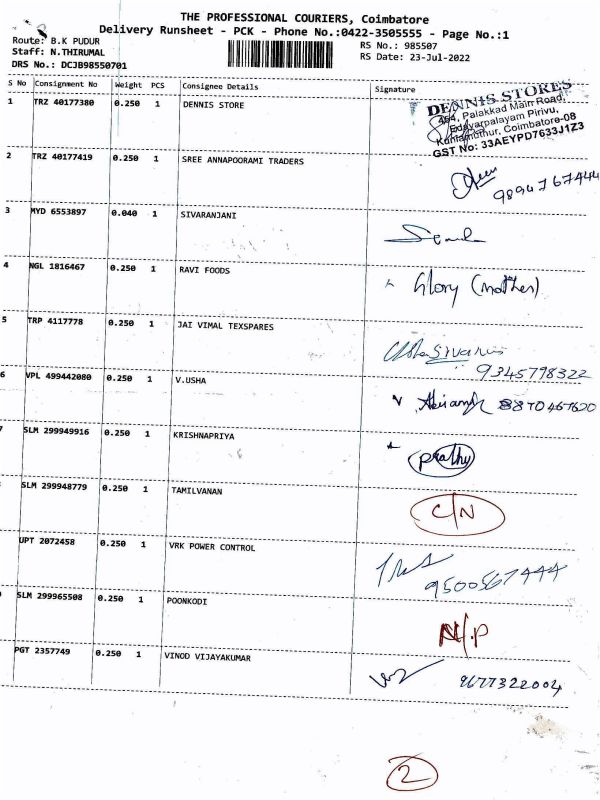 THE PROFESSIONAL COURIERS, Coimbatore
Delivery Runsheet - PCK - Phone No.:0422-3505555 - Page No.:1
Route: B.K PUDUR
RS No.: 985507
Staff: N.THIRUMAL
RS Date: 23-Jul-2022
DRS No.: DCJB98550701
S No Consignment No Weight PCS Consignee Details Signature
1 TRZ 40177380 0.250 1 DENNIS STORE
DENNIS STORES
454, Palakkad Main Road,
Edayarpalayam Pirivu,
Kuniamuthur, Coimbatore-08
GST No: 33AEYPD7633J1Z3
2 TRZ 40177419 0.250 1 SREE ANNAPOORAMI TRADERS
9894767444
3 MYD 6553897 0.040 1 SIVARANJANI
4 NGL 1816467 0.250 1 RAVI FOODS
Glory (mother)
5 TRP 4117778 0.250 1 JAI VIMAL TEXSPARES
9345798322
6 VPL 499442080 0.250 1 V.USHA
8870467620
7 SLM 299949916 0.250 1 KRISHNAPRIYA
prathy
SLM 299948779 0.250 1 TAMILVANAN
C/N
UPT 2072458 0.250 1 VRK POWER CONTROL
9500567444
SLM 299965508 0.250 1 POONKODI
N/P
PGT 2357749 0.250 1 VINOD VIJAYAKUMAR
9677322004
2